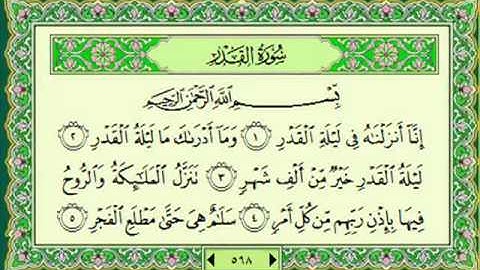 سُورَةُ الْقَدْرِ
بِسْمِ اللَّهِ الرَّحْمَٰنِ الرَّحِيمِ
إِنَّا أَنزَلْنَاهُ فِي لَيْلَةِ الْقَدْرِ ١ وَمَا أَدْرَاكَ مَا لَيْلَةُ الْقَدْرِ ٢
لَيْلَةُ الْقَدْرِ خَيْرٌ مِّنْ أَلْفِ شَهْرٍ ٣ تَنَزَّلُ الْمَلَائِكَةُ وَالرُّوحُ
فِيهَا بِإِذْنِ رَبِّهِم مِّن كُلِّ أَمْرٍ ٤ سَلَامٌ هِيَ حَتَّىٰ مَطْلَعِ الْفَجْرِ ٥
٥٦٨